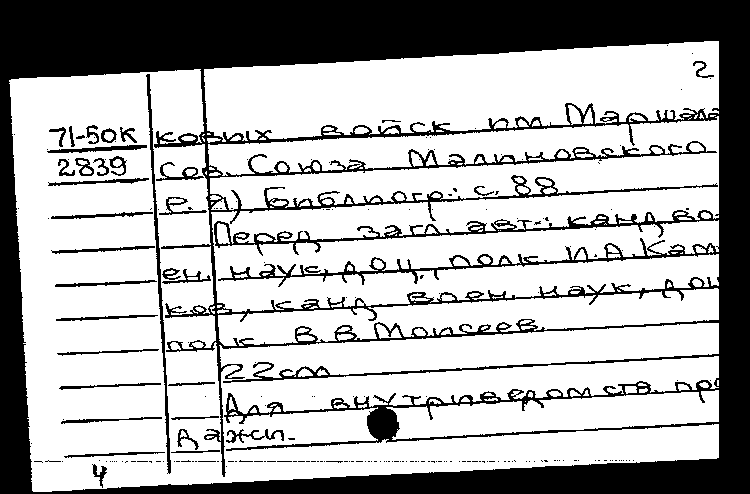 2
71-50К ковых войск им. Маршала
2839 Сов. Союза Малиновского
Р. Я.) Библиогр.: с. 88.
Перед загл. авт.: канд. во-
ен. наук, доц., полк. И.А. Кам-
ков, канд. воен. наук, доц.
полк. В. В. Моисеев.
22см
Для внутриведомств. про-
дажи.
4